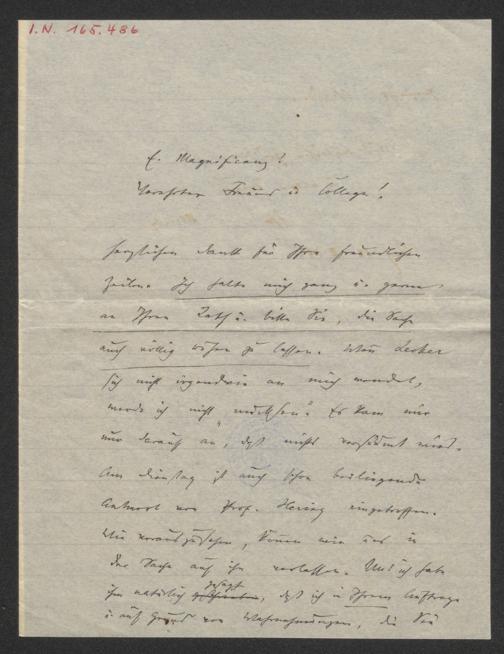 I.N. 165.486
E. Magnifizenz!
Verehrter Freund u. College!
herzlichen Dank für Ihre freundlichen
Zeilen. Ich halte mich ganz u. gerne
an Ihren Rath u. bitte Sie, die Sache
auch völlig ruhen zu lassen. Wenn Lecher
sich nicht irgendwie an mich wendet,
werde ich nicht "mucksen". Es kam mir
nur darauf an, daß nichts versäumt wird.
Am Dienstag ist auch schon beiliegende
Antwort von Prof. Hering eingetroffen.
Wie vorauszusehen, können wir uns in
der Sache auf ihn verlassen. Und ich habe
gesagt
ihm natürlich, daß ich in Ihrem Auftrage
u. auf Grund von Wahrnehmungen, die Sie